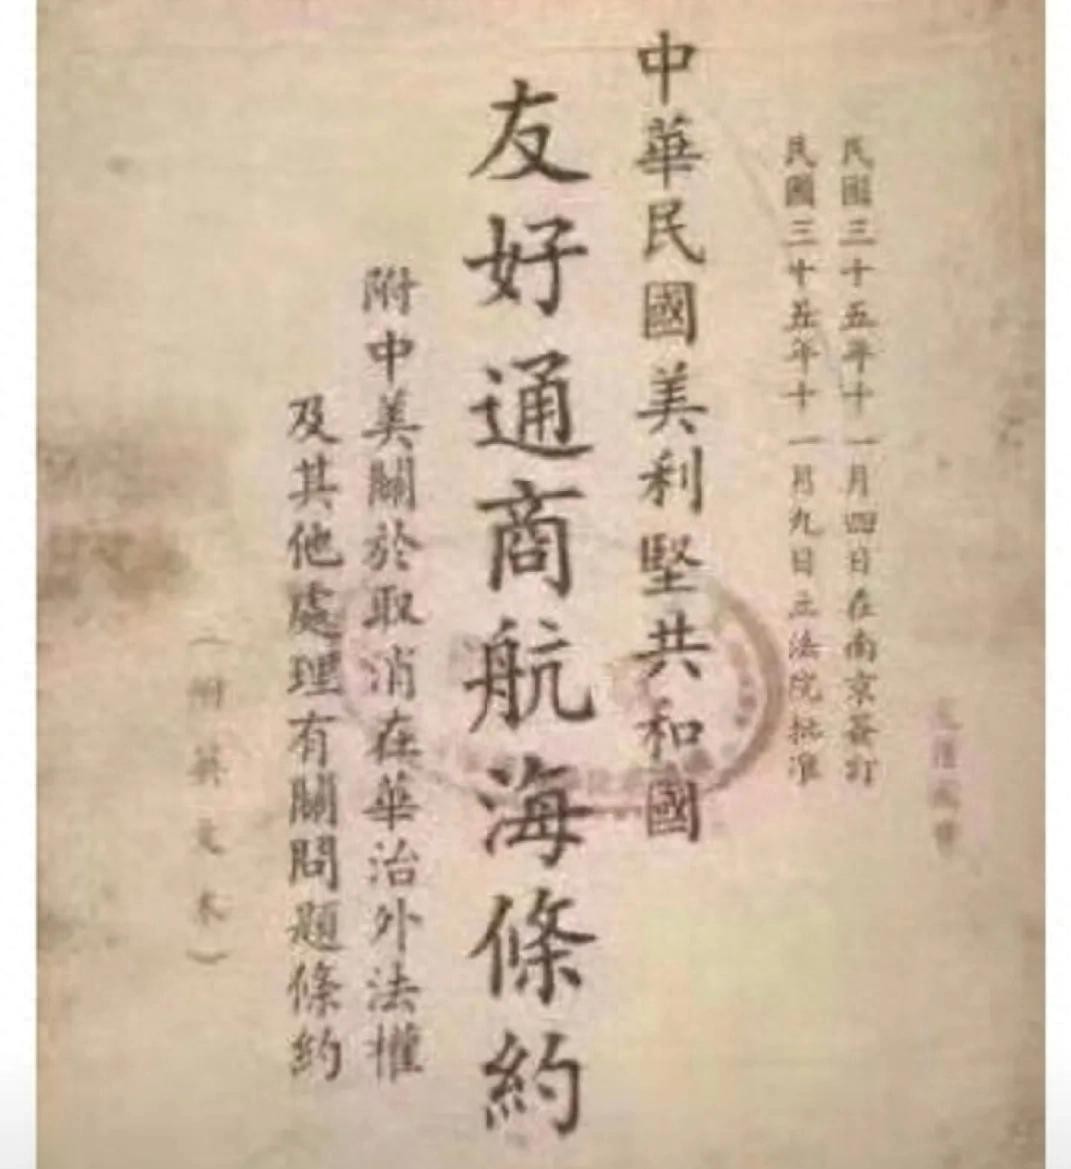 民國三十五年十一月四日在南京簽訂
民國三十五年十一月九日立法院批准
中華民國美利堅共和國
友好通商航海條約
附中美關於取消在華治外法權
及其他處理有關問題條約
（附英文本）